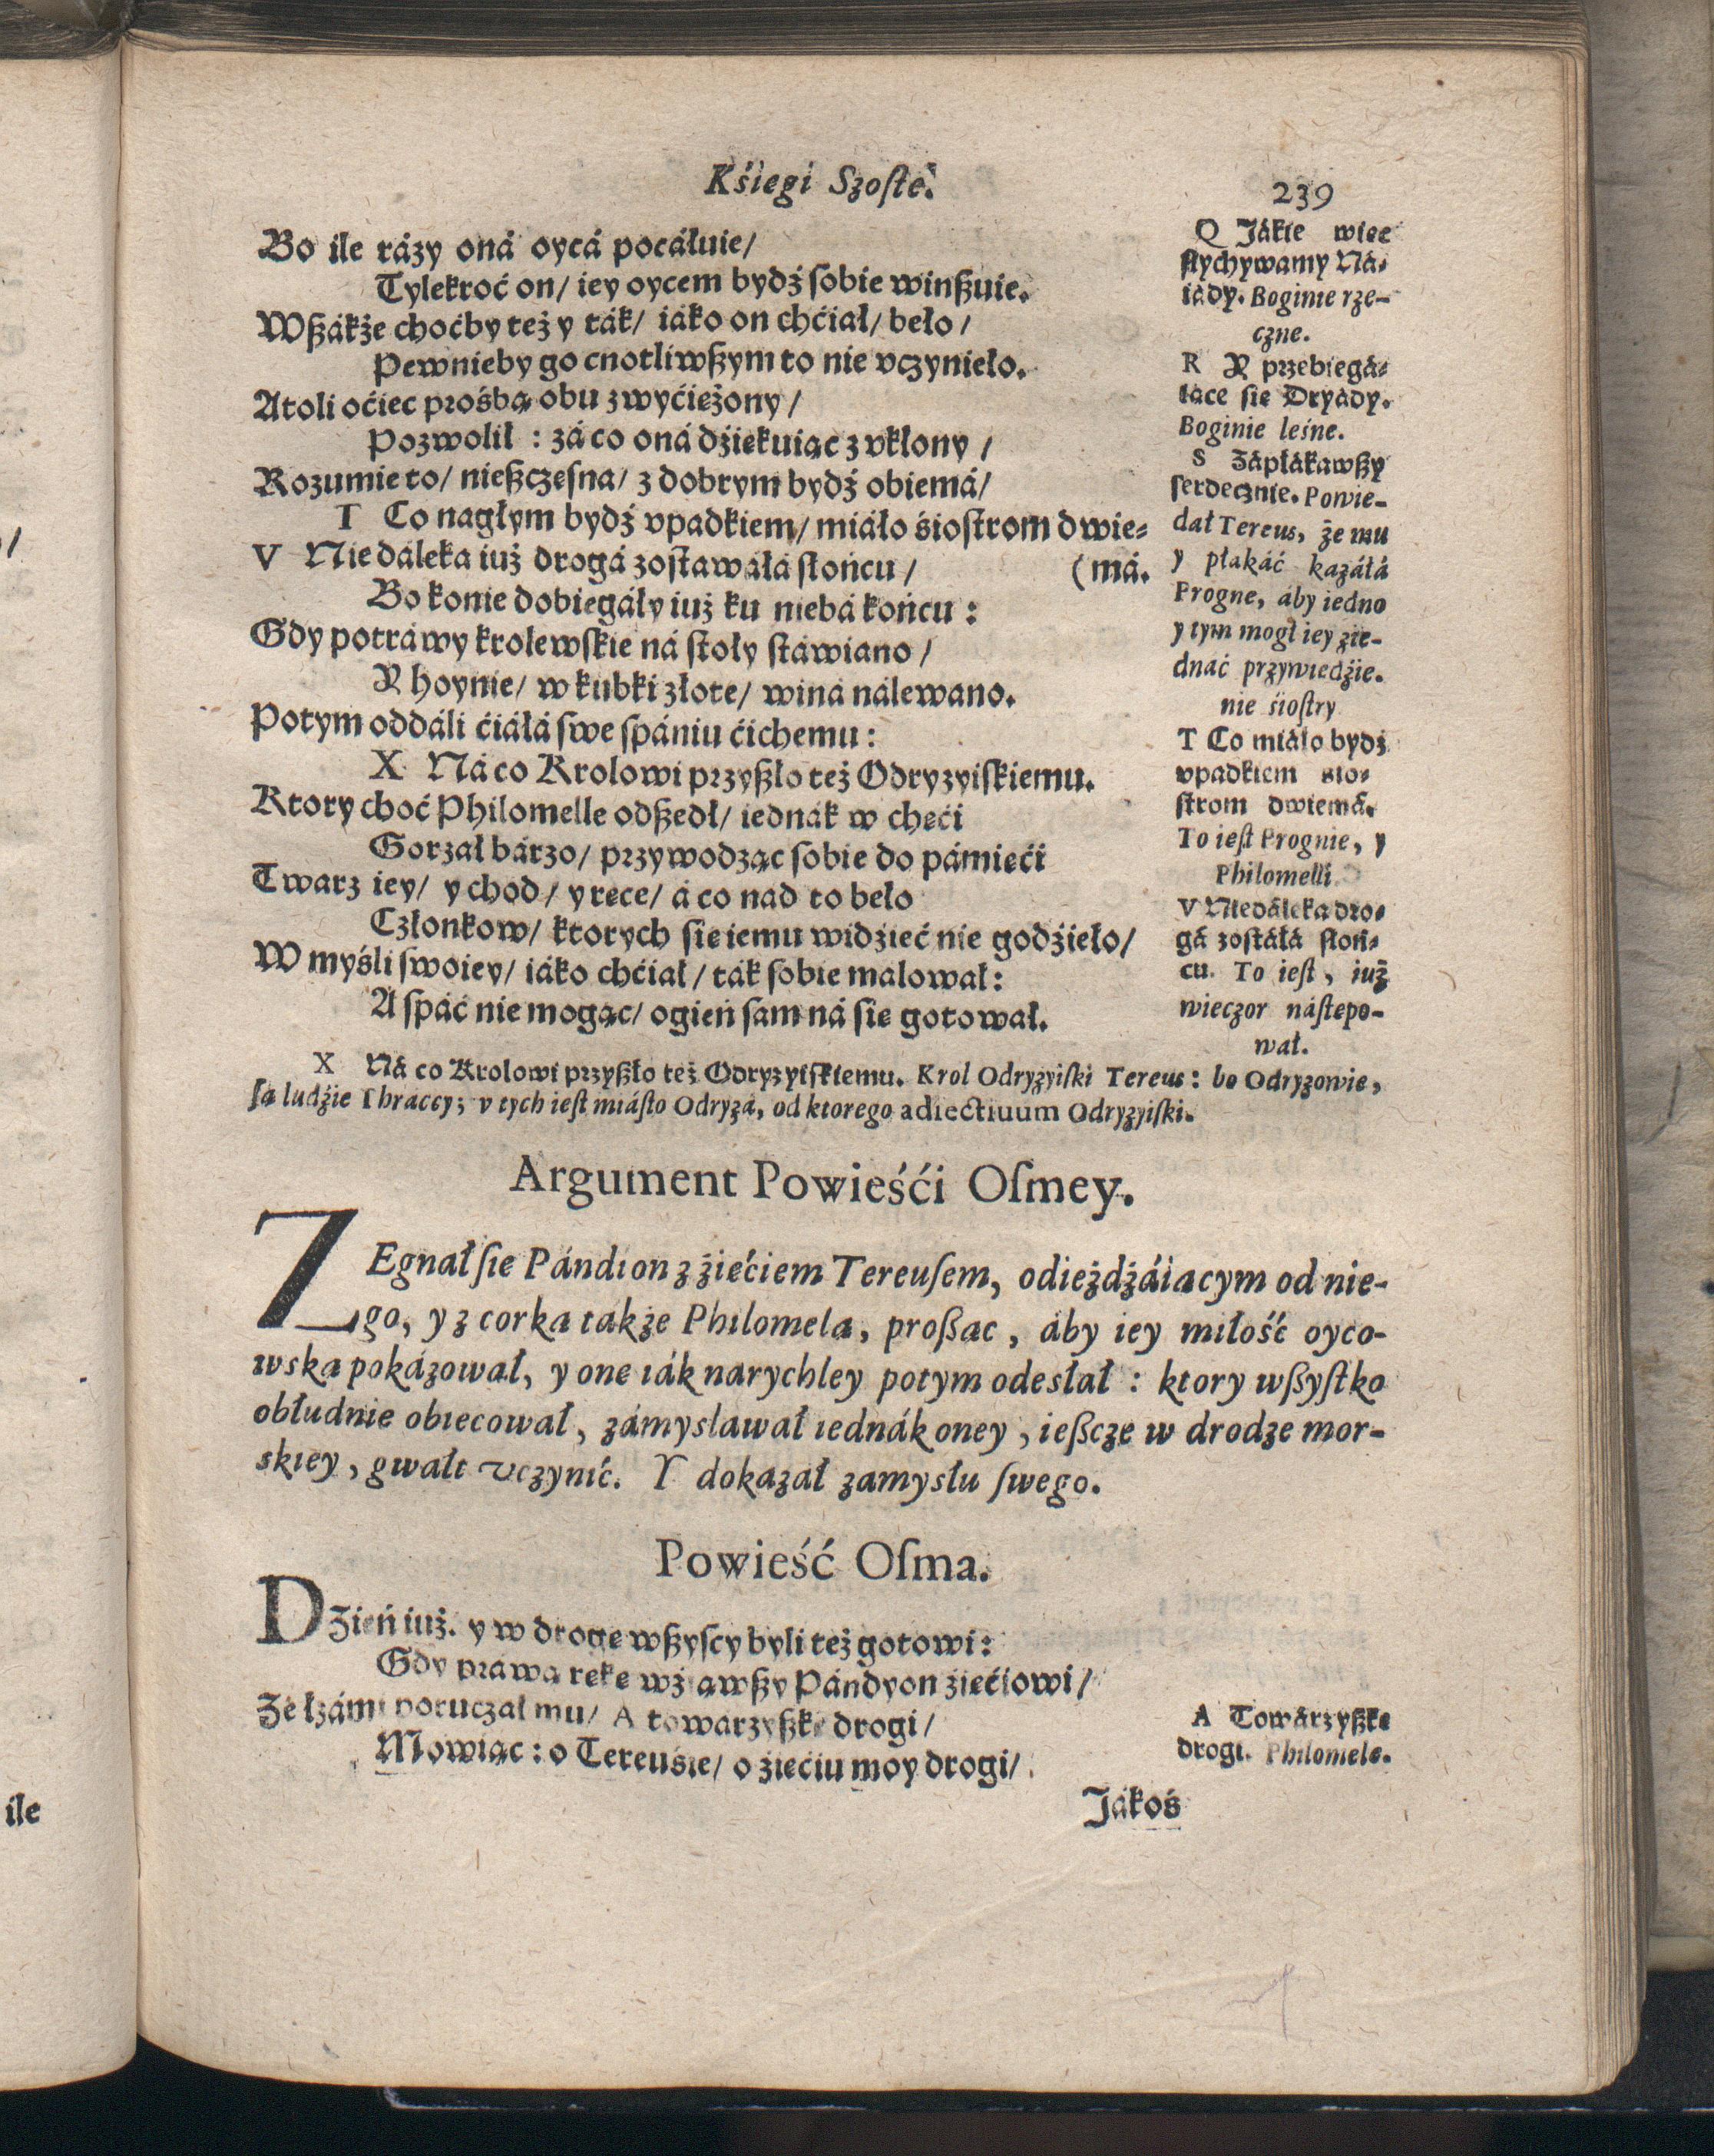 Kśięgi Szoste.
239
Bo ile rázy oná oycá pocáłuie/
Tylekroć on/ iey oycem bydź sobie winßuie.
Wßákże choćby też y ták/ iáko on chćiał/ beło/
Pewnieby go cnotliwßym to nie vczynieło.
Atoli oćiec prośbą obu zwyćiężony/
Pozwolił : zá co oná dźiękuiąc z vkłony /
Rozumie to/ nießczesna/ z dobrym bydź obiemá/
T Co nagłym bydź vpadkiem/ miáło śiostrom dwie-
V Niedáleka iuż drogá zostawáłá słońcu /
(má.
Bo konie dobiegáły iuż ku niebá końcu :
Gdy potráwy krolewskie ná stoły stáwiano /
Y hoynie/ w kubki złote/ winá nálewano.
Potym oddáli ćiáłá swe spániu ćichemu :
X Ná co Krolowi przyßło też Odryzyiskiemu.
Ktory choć Philomelle odßedł/ iednák w chęći
Gorzał bárzo/ przywodząc sobie do pámięći
Twarz iey/ y chod/ y ręce/ á co nad to beło
Członkow/ ktorych się iemu widźieć nie godźieło/
W myśli swoiey/ iáko chćiał/ ták sobie malował:
A spáć nie mogąc/ ogień sam ná się gotował.
Q Jákie więc
słychywamy Ná-
iády. Boginie rze-
czne.
R Y przebiegá-
iące się Dryády.
Boginie leśne.
S Zápłákawßy
serdecznie. Powie-
dał Tereus, że mu
y płakáć kazáłá
Progne, áby iedno
y tym mogł iey zie-
dnać przywiedźie-
nie śiostry
T Co miáło bydź
vpadkiem śio-
strom dwiemá.
To iest Prognie, y
Philomelli
V Niedáleka dro-
gá zostáłá słoń-
cu. To iest, iuż
wieczor nástępo-
wał.
X Ná co Krolowi przyßło też Odryzyiskiemu. Krol Odryzyiski Tereus: bo Odryzowie,
są ludźie Thraccy; v tych iest miásto Odryzá, od ktorego adiectiuum Odryzyiski.
Argument Powieśći Osmey.
ZEgnał się Pándion z źiećiem Tereusem, odieżdżáiącym od nie-
go, y z corką także Philomelą, proßąc, áby iey miłość oyco-
wską pokázował, y onę iák narychley potym odesłał : ktory wßystko
obłudnie obiecował, zámyslawał iednák oney, ießcze w drodze mor-
skiey, gwałt vczynić. Y dokazał zamysłu swego.
Powieść Osma.
DZień iuż. y w drogę wßyscy byli też gotowi:
Gdy prawą rękę wźiąwßy Pándyon źiećiowi/
Ze łzámi poruczał mu/ A towarzyßkę drogi/
Mowiąc : o Tereuśie/ o źiećiu moy drogi/
A Towárzyßkę
drogi. Philomelę.
Jákoś
ile